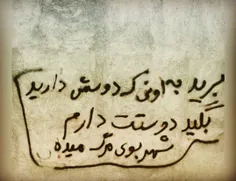 برید به اونی که دوسش دارید
بگید دوستت دارم
شهر بوی مرگ میده